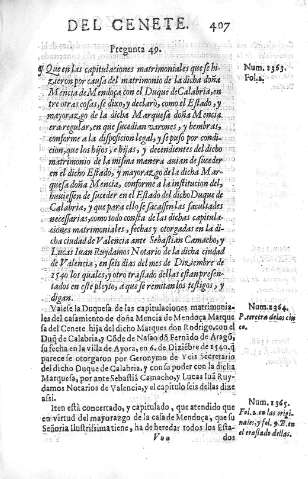 DEL CENETE. 407
Pregunta 49.
¶ Que en las capitulaciones matrimoniales que se hi-
zieron por causa del matrimonio de la dicha doña
Mencia de Mendoça con el Duque de Calabria, en
tre otras cosas, se dixo, y declarò, como el Estado, y
mayorazgo de la dicha Marquesa doña Mencia
era regular, en que sucedian varones, y hembras,
conforme a la disposicion legal, y se puso por condi-
cion, que los hijos, e hijas, y decendientes del dicho
matrimonio de la misma manera auian de suceder
en el dicho Estado, y mayorazgo de la dicha Mar-
quesa doña Mencia, conforme a la institucion del,
huuiessen de suceder en el Estado del dicho Duque de
Calabria, y que para ello se sacassen las facultades
necessarias, como todo consta de las dichas capitula-
ciones matrimoniales, fechas y otorgadas en la di-
cha ciudad de Valencia ante Sebastian Camacho, y
Lucas Iuan Ruydamos Notario de la dicha ciudad
de Valencia, en seis dias del mes de Diziembre de
1540 los quales, y otro traslado dellas estan presen-
tados en este pleyto, a que se remitan los testigos, y
digan.
Valese la Duquesa de las capitulaciones matrimonia-
les del casamiento de doña Mencia de Mendoça Marque
sa del Cenete hija del dicho Marques don Rodrigo, con el
Duq̃ de Calabria, y Cõde de Nasao dõ Fernãdo de Aragõ,
su fecha en la villa de Ayora, en 6. de Diziẽbre de 1540. q̃
parece se otorgaron por Geronymo de Veis Secretario
del dicho Duque de Calabria, y con su poder con la dicha
Marquesa, por ante Sebastiã Camacho, y Lucas Iuã Ruy-
damos Notarios de Valencia, y el capitulo seis dellas dize
assi.
Iten està concertado, y capitulado, que atendido que
en virtud del mayorazgo de la casa de Mendoça, que su
Señoria Ilustrissima tiene, ha de heredar todos los Esta-
Vuu dos
Num. 1363.
Fol. 2.
Num. 1364.
P. tercera delas chi
co.
Num. 1365.
Fol. 2. en las origi-
nales, y fol. 9. B. en
el traslado dellas.